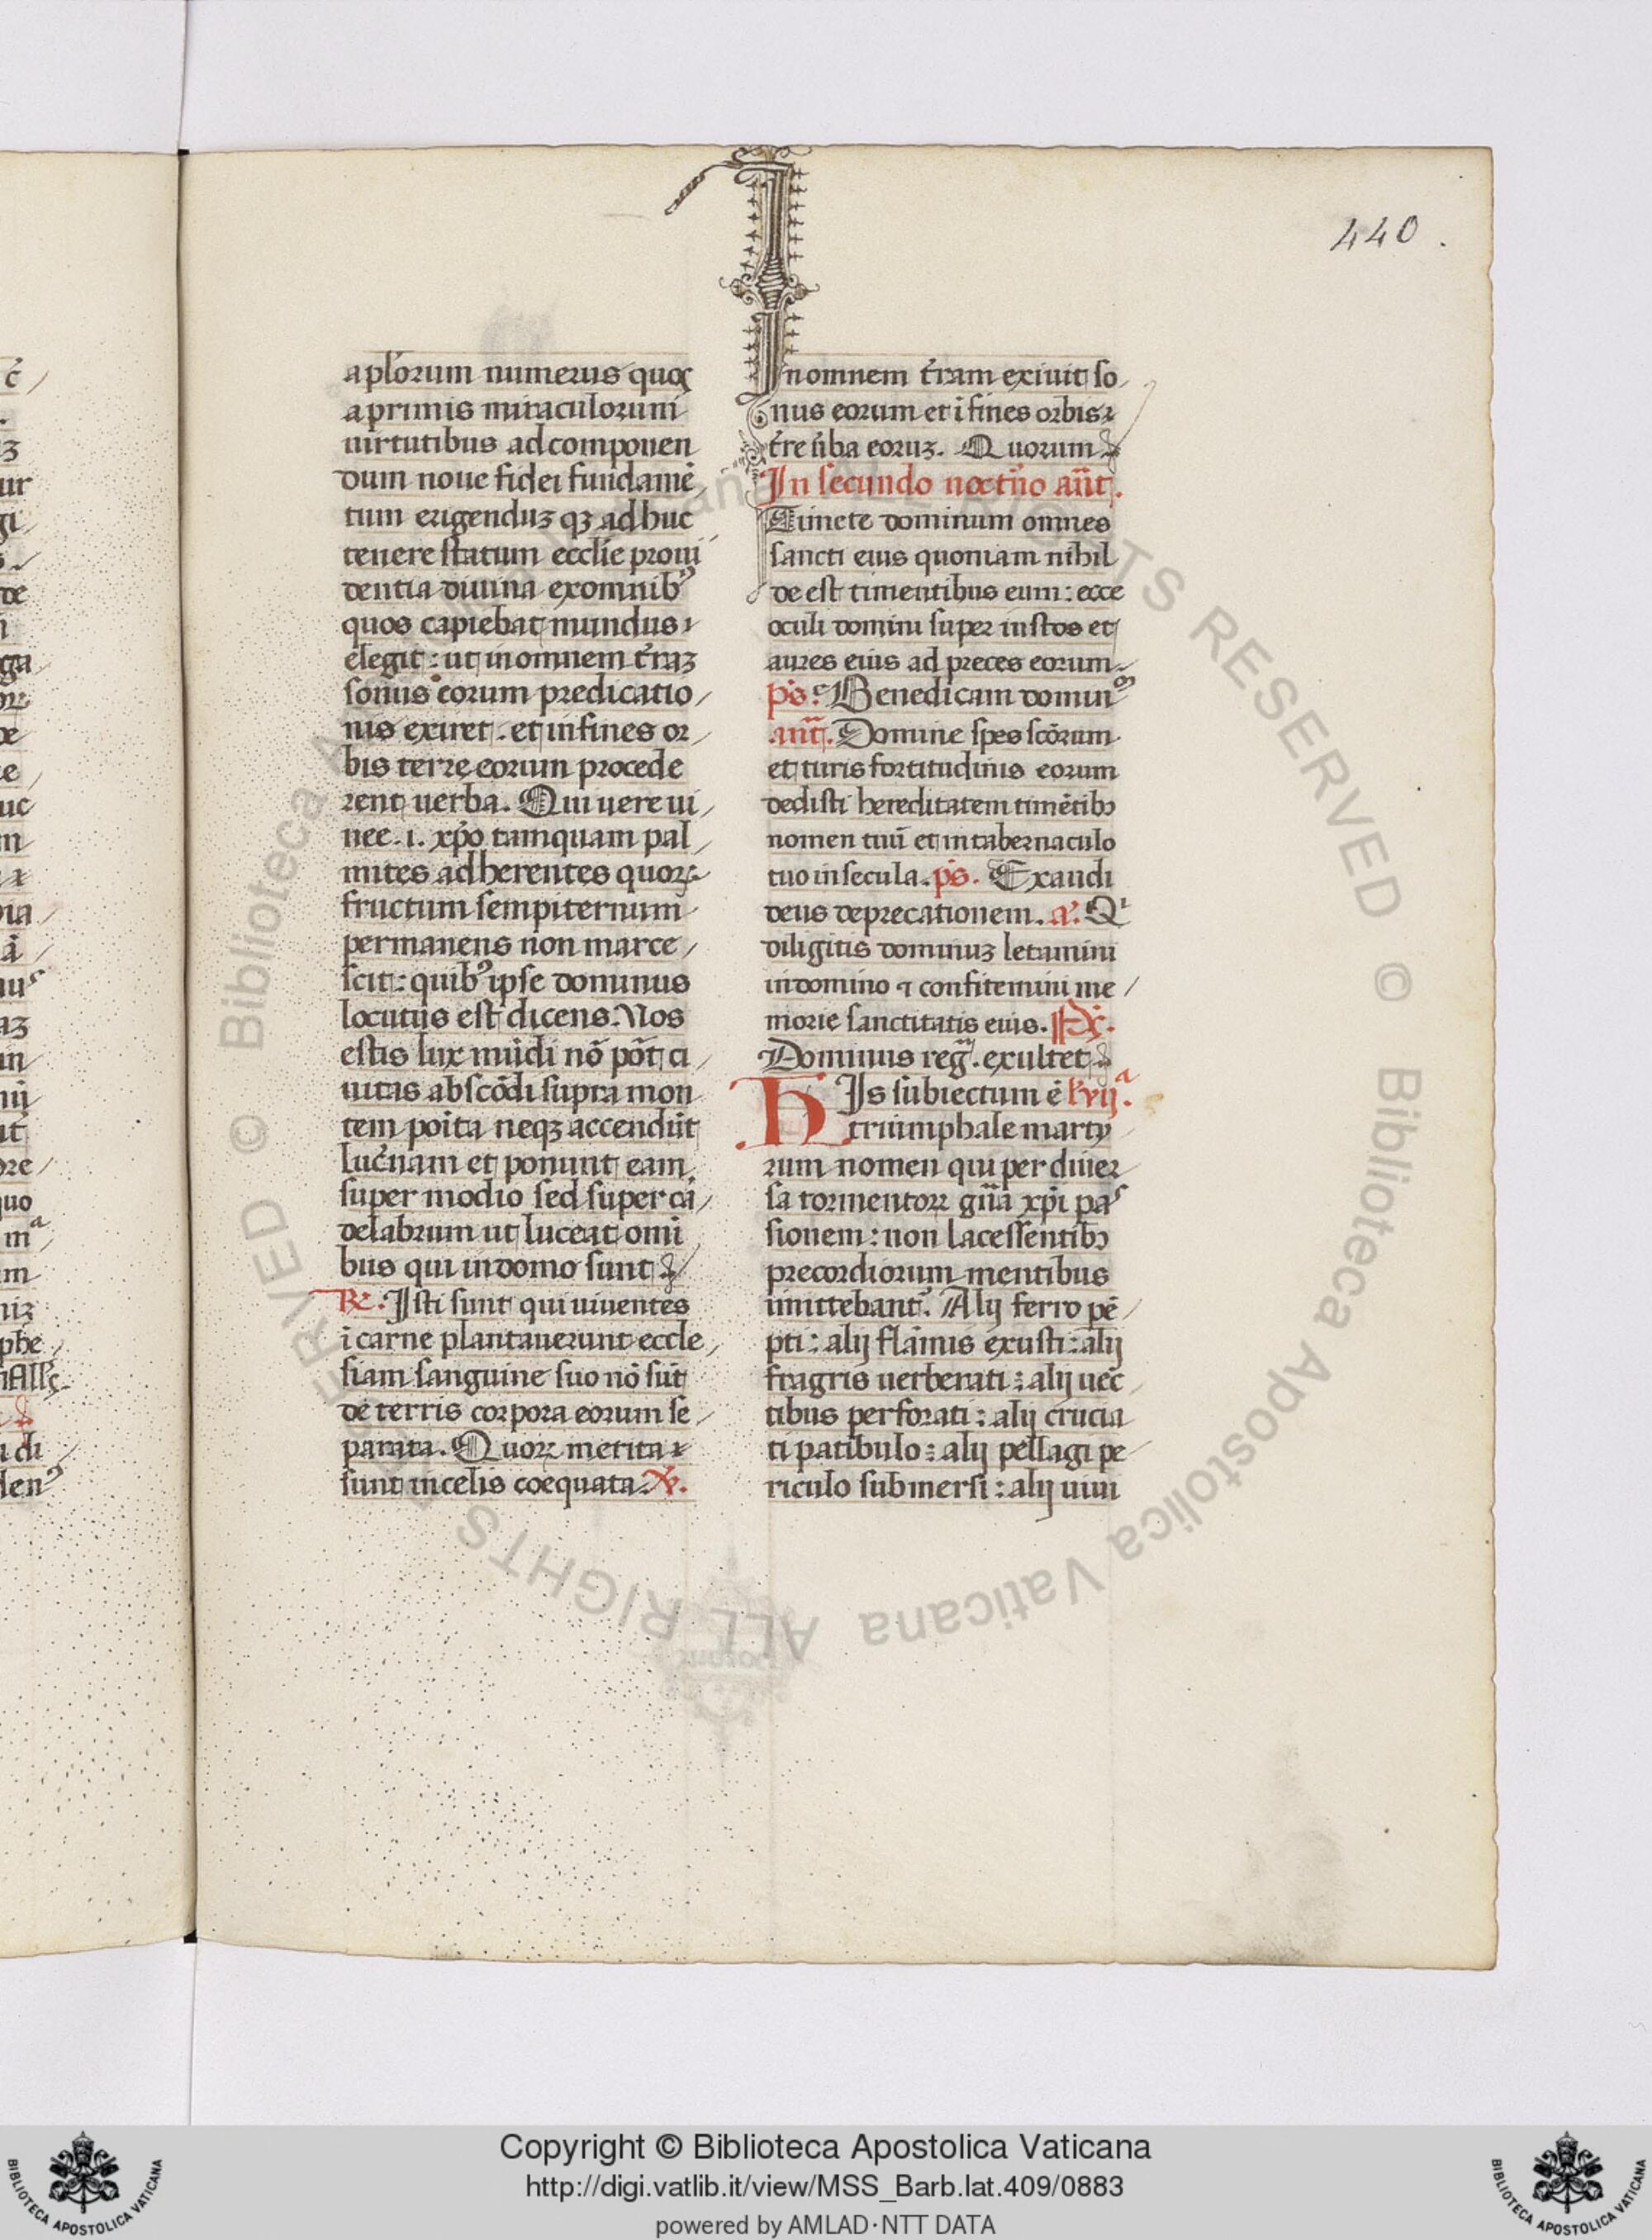 440.
aplorum numerus quoꝝ
a primis miraculorum
uirtutibus ad componen
dum noue fidei fundamē
tum erigenduꝫ qꝫ ad huc
tenere statum ecclie proui
dentia diuina ex omnibꝰ
quos capiebat mundus
elegit: ut in omnem t̄raꝫ
sonus eorum predicatio
nis exiret. et in fines or
bis terre eorum procede
rent uerba. Qui uere ui
nee .i. xp̄o tamquam pal
mites adherentes quoꝝ
fructum sempiternum
permanens non marce
scit: quibꝰ ipse dominus
locutus est dicens. Nos
estis lux mūdi nō pōt ci
uitas abscōdi supra mon
tem poita neqꝫ accendūt
luc̄nam et ponunt eam
super modio sed super cā
delabrum ut luceat omī
bus qui in domo sunt
℞. Isti sunt qui uiuentes
ī carne plantauerunt eccle
siam sanguine suo nō sūt
de terris corpora eorum se
parata. Quoꝝ merita
sunt in celis coequata. ℣.
In omnem t̄ram exiuit so
nus eorum et ī fines orbis
t̄re ūba eoruꝫ. Quorum
In secundo noct̄no an̄t.
Timete dominum omnes
sancti eius quoniam nihil
de est timentibus eum: ecce
oculi domini super iustos et
aures eius ad preces eorum
p̄s. Benedicam domin
ant̄. Domine spes scōrum
et turis fortitudinis eorum
dedisti hereditatem timētibꝫ
nomen tuū et in tabernaculo
tuo in secula. p̄s. Exaudi
deus deprecationem. a. Q
diligitis dominuꝫ letamini
in domino ⁊ confitemini me
morie sanctitatis eius. Ps.
Dominus reg. exultet
HIs subiectum ē
triumphale marty
rum nomen qui per diuer
sa tormentoꝝ gn̄a xp̄i pas
sionem: non lacessentibꝫ
precordiorum mentibus
imittebant. Alij ferro pē
pti: alij flāmis exusti: alij
fragris uerberati: alij uec
tibus perforati: alij crucia
ti patibulo: alij pellagi pe
riculo submersi: alij uiui
Copyright © Biblioteca Apostolica Vaticana
http://digi.vatlib.it/view/MSS_Barb.lat.409/0883
powered by AMLAD·NTT DATA
BIBLIOTECA APOSTOLICA VATICANA
BIBLIOTECA APOSTOLICA VATICANA
© Biblioteca Apostolica Vaticana ALL RIGHTS RESERVED
© Biblioteca Apostolica Vaticana ALL RIGHTS RESERVED